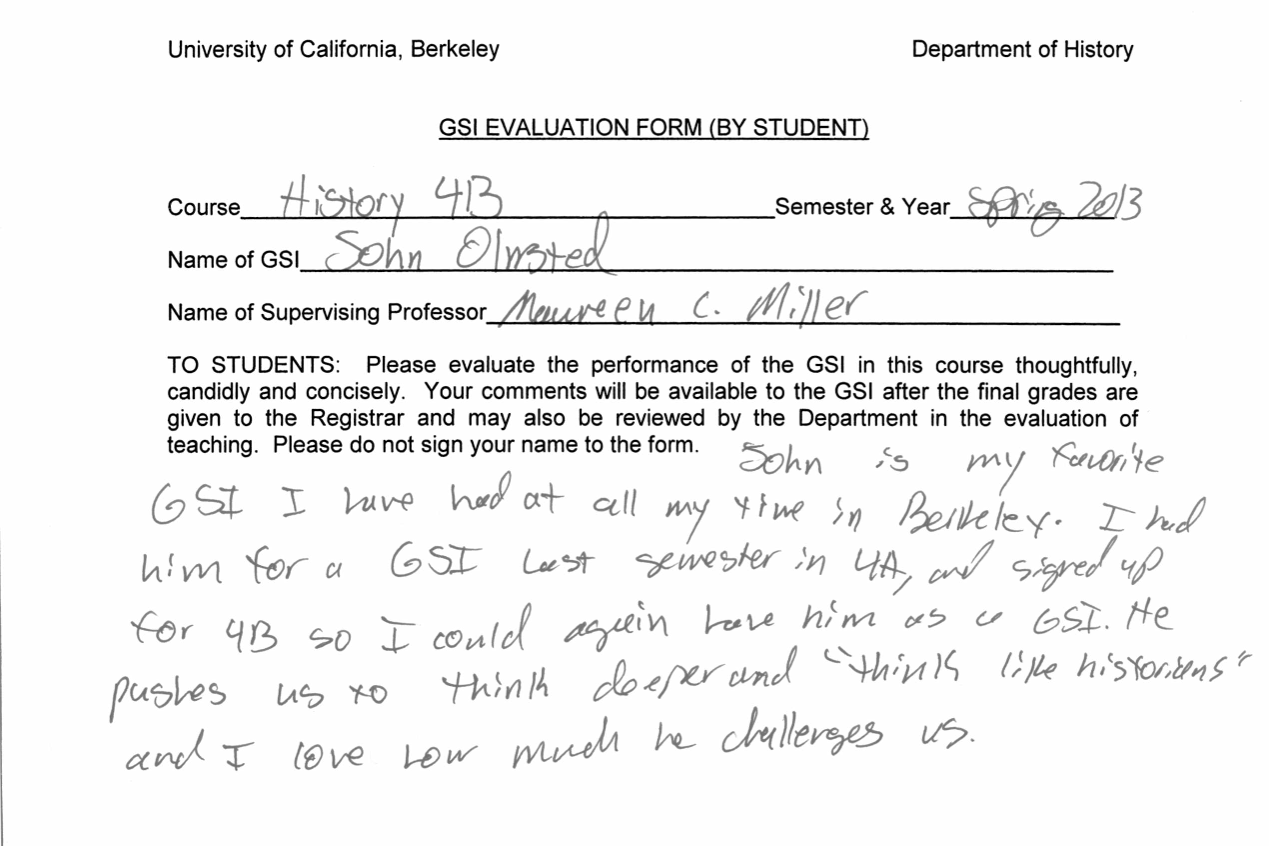 University of California, Berkeley Department of History
GSI EVALUATION FORM (BY STUDENT)
Course History 4B Semester & Year Spring 2013
Name of GSI John Olmsted
Name of Supervising Professor Maureen C. Miller
TO STUDENTS: Please evaluate the performance of the GSI in this course thoughtfully,
candidly and concisely. Your comments will be available to the GSI after the final grades are
given to the Registrar and may also be reviewed by the Department in the evaluation of
teaching. Please do not sign your name to the form. John is my favorite
GSI I have had at all my time in Berkeley. I had
him for a GSI last semester in 4A, and signed up
for 4B so I could again have him as a GSI. He
pushes us to think deeper and "think like historians"
and I love how much he challenges us.